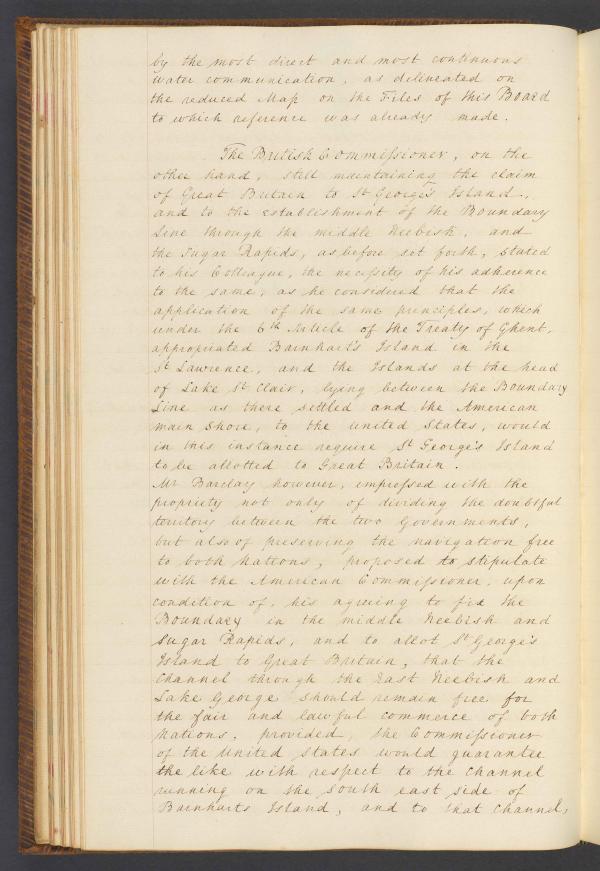 by the most direct and most continuous
water communication, as delineated on
the reduced Map on the Files of this Board
to which reference was already made.
The British Commissioner, on the
other hand, still maintaining the claim
of Great Britain to St George's Island,
and to the establishment of the Boundary
Line through the middle Neebish, and
the Sugar Rapids, as before set forth, stated
to his Colleague, the necessity of his adherence
to the same, as he considered that the
application of the same principles, which
under the 6th Article of the Treaty of Ghent,
appropriated Barnhart's Island in the
St Lawrence, and the Islands at the head
of Lake St Clair, lying between the Boundary
Line as there settled and the American
main Shore, to the United States, would
in this instance require St George's Island
to be allotted to Great Britain.
Mr Barclay however, impressed with the
propriety not only of dividing the doubtful
territory between the two Governments,
but also of preserving the navigation free
to both Nations, proposed to stipulate
with the American Commissioner, upon
condition of, his agreeing to fix the
Boundary in the middle Neebish and
Sugar Rapids, and to allot St George's
Island to Great Britain, that the
Channel through the East Neebish and
Lake George should remain free for
the fair and lawful commerce of both
Nations, provided, the Commissioner
of the United States would guarantee
the like with respect to the Channel
running on the south east side of
Barnharts Island, and to that Channel,